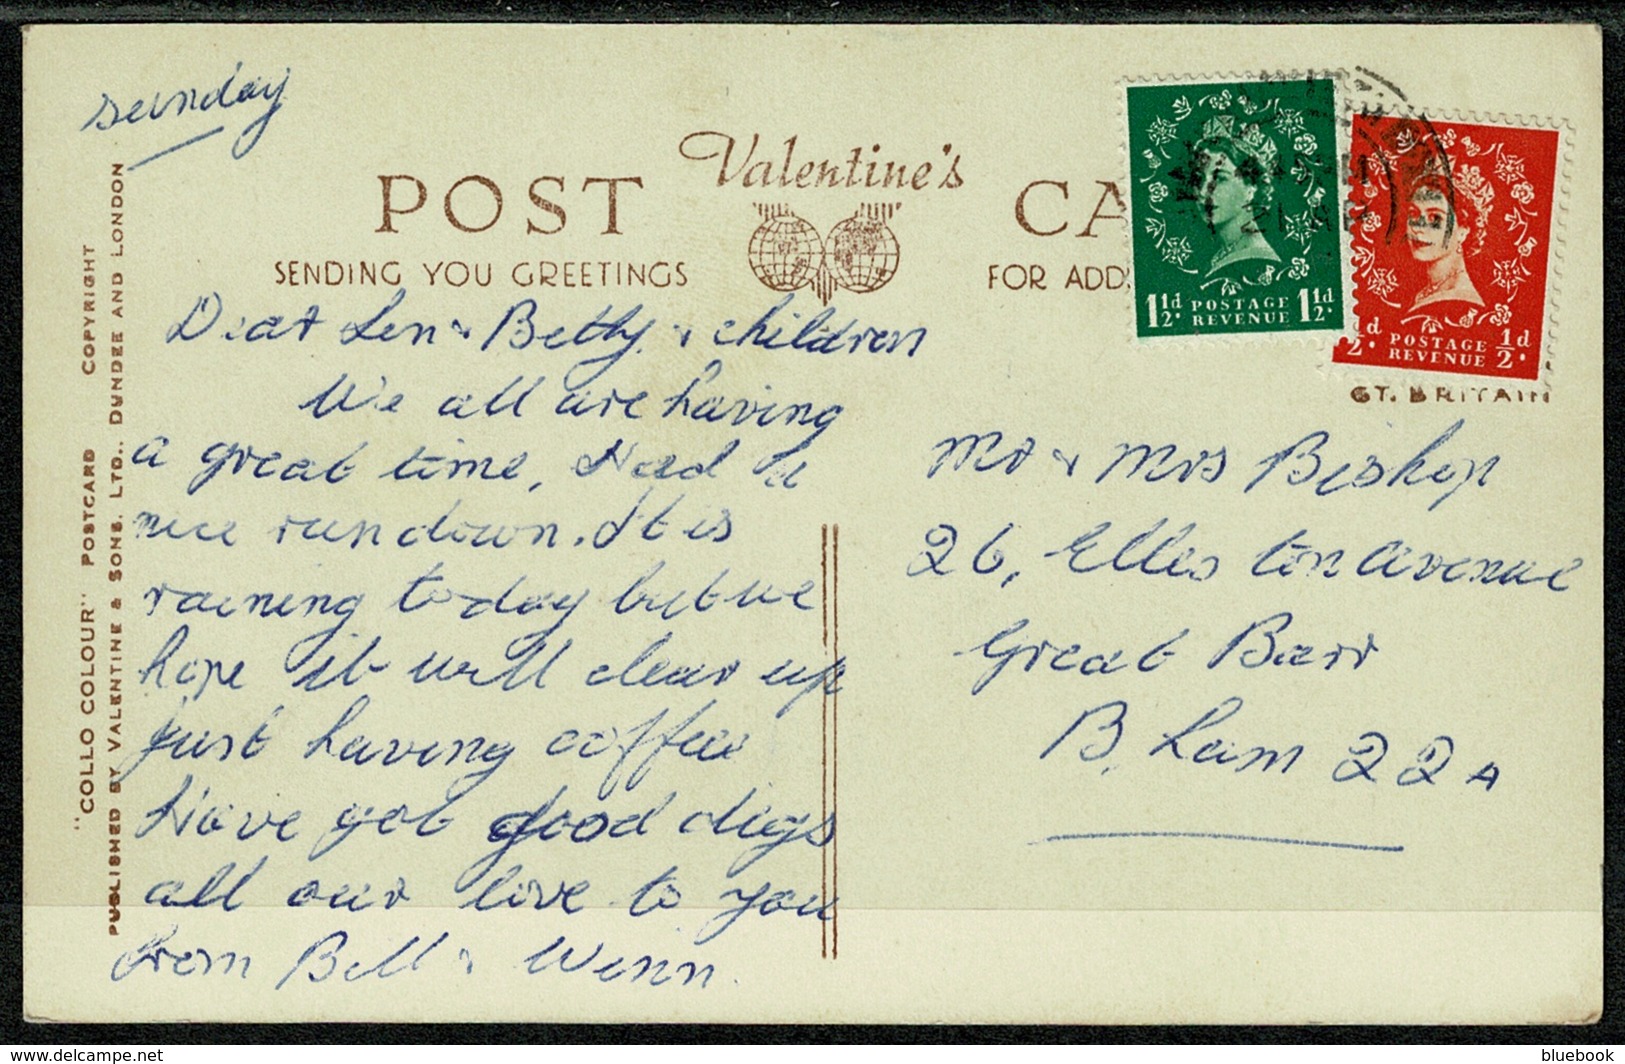 sunday
Valentine's
POST CA
SENDING YOU GREETINGS
FOR ADD
1½d. POSTAGE REVENUE 1½d.
½d. POSTAGE REVENUE ½d.
GT. BRITAIN
21 AP
"COLLO COLOUR" POSTCARD COPYRIGHT
PUBLISHED BY VALENTINE & SONS. LTD., DUNDEE AND LONDON
Dear Len & Betty & children
We all are having
a great time, Had a
nice run down. It is
raining today but we
hope it will clear up
just having coffee
Have got good digs
all our love to you
from Bill & Winn.
Mr & Mrs Bishop
26, Elleston Avenue
Great Barr
B. ham 22A
bluebook
www.delcampe.net